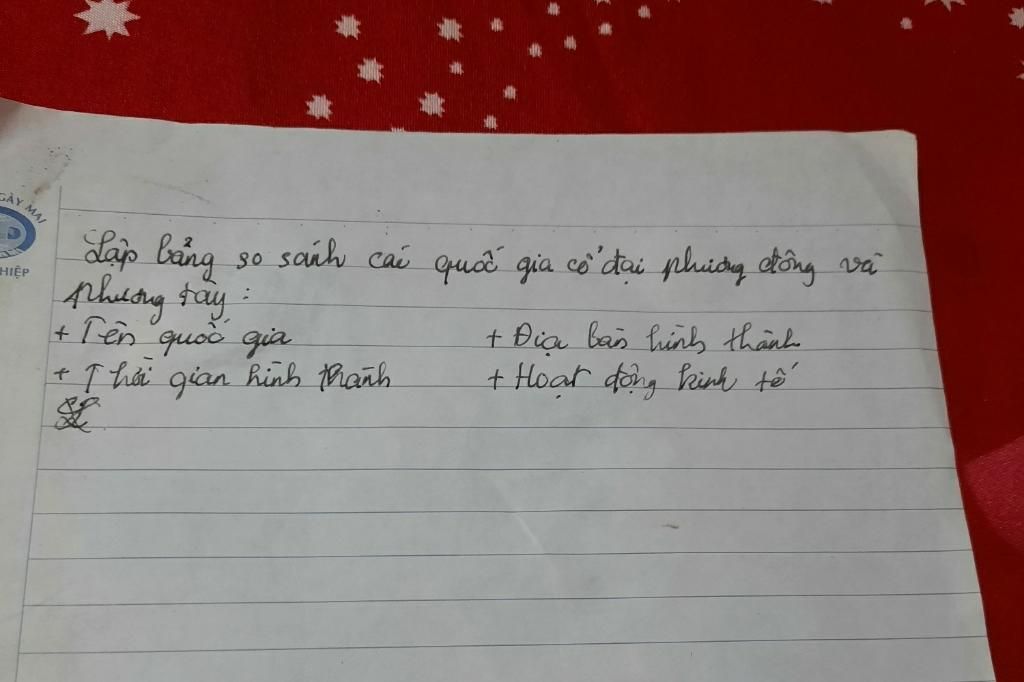 GÀY MAI
HIỆP
Lập bảng so sánh các quốc gia cổ đại phương đông và
phương tây :
+ Tên quốc gia + Địa bàn hình thành
+ Thời gian hình thành + Hoạt động kinh tế